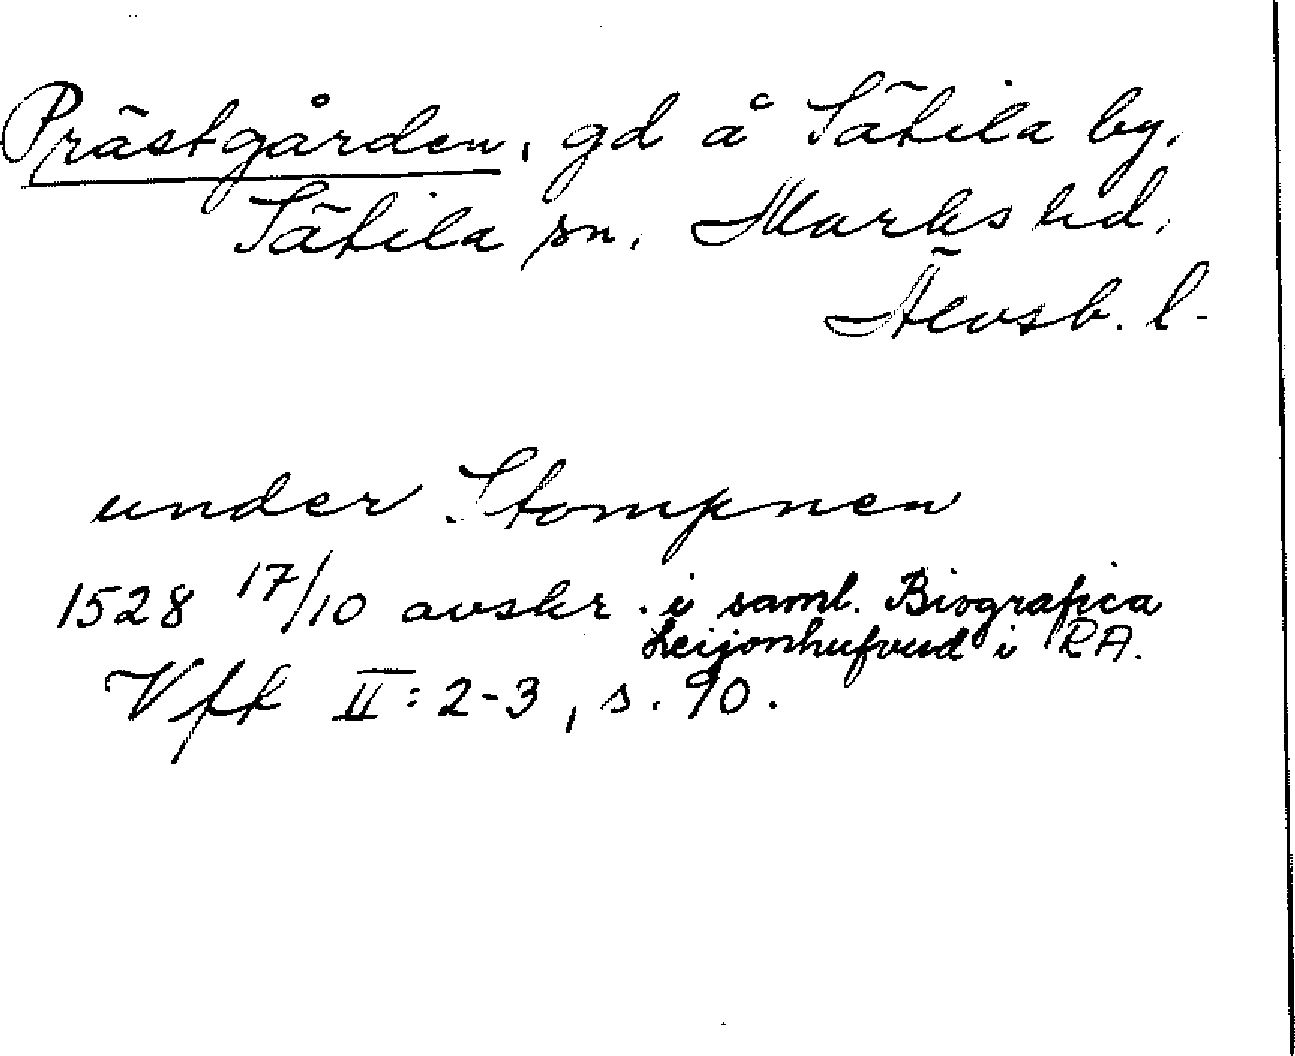 Prästgården, gd å Sätila by,
Sätila sn. Marks hd,
Älvsb. l.
under Stompnen
1528 17/10 avskr. i saml. Biografica
Leijonhufvud i RA.
Vfk II: 2-3, s. 90.